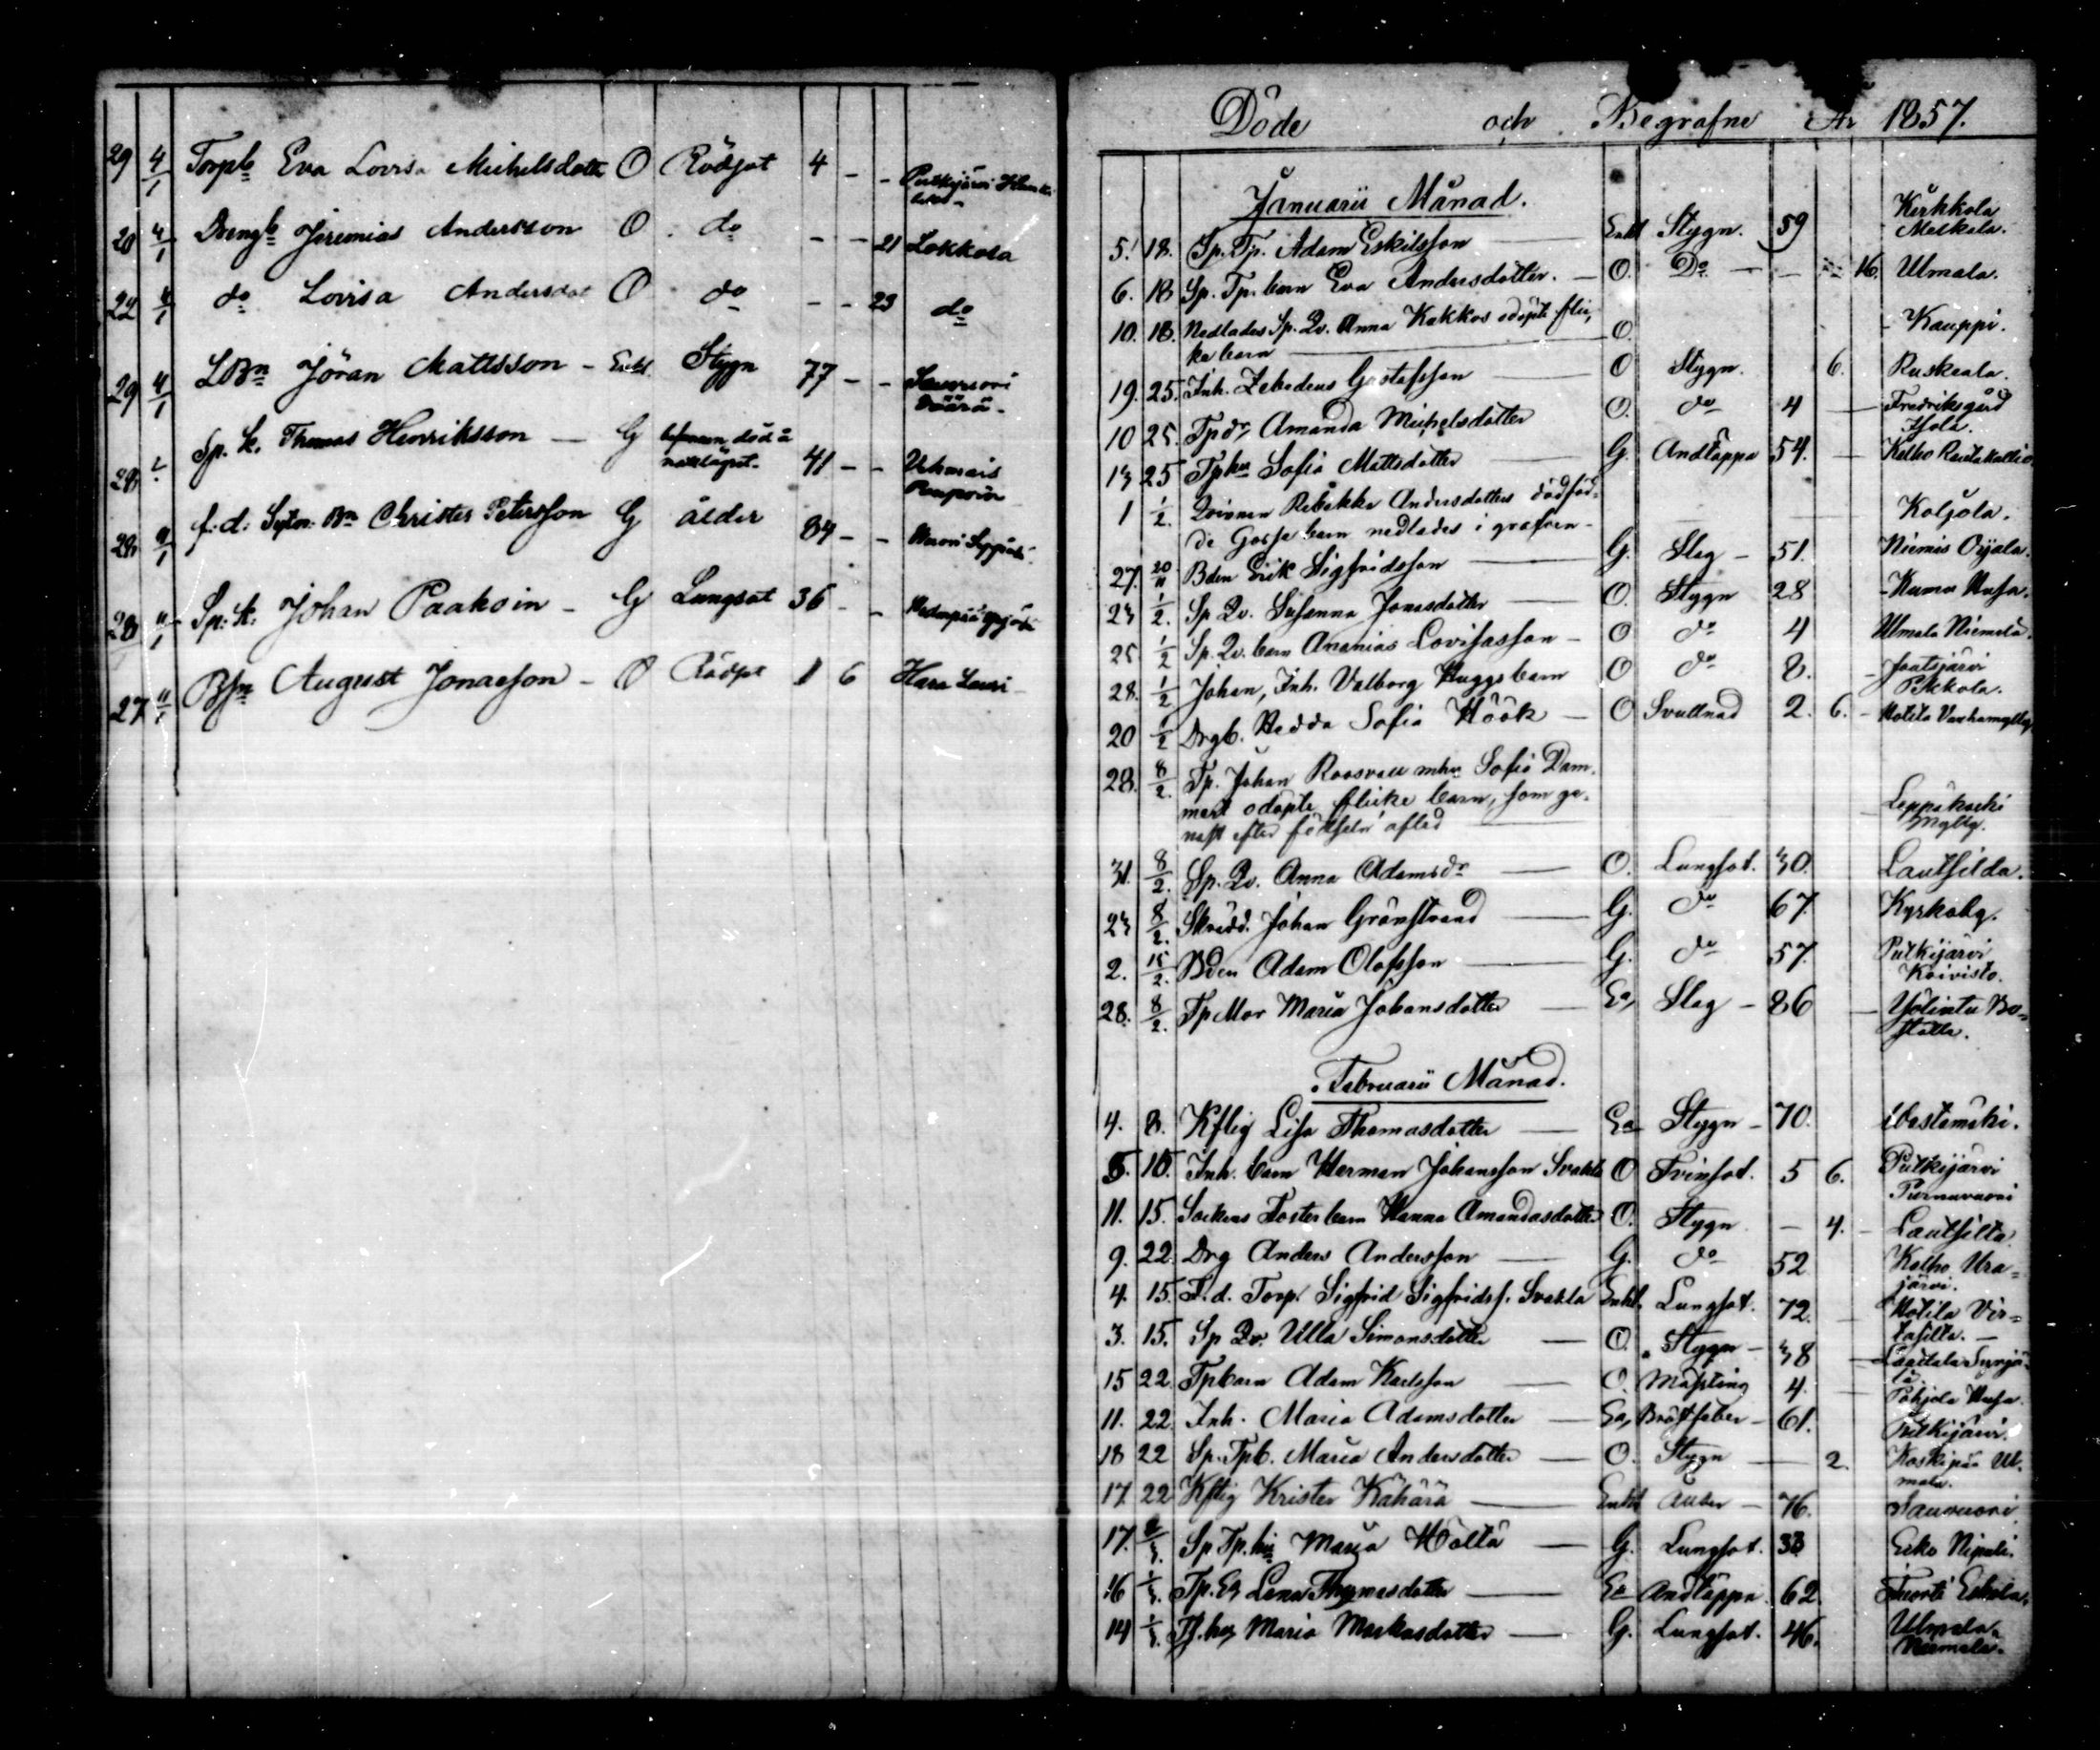 29 4/1 Torpb Eva Lovisa Michelsdottr O Rödsot 4 - - Putkijärvi
20 4/1 Drengb Jeremias Andersson O do - - 21 Lokkola
22 4/1 do Lovisa Andersdot O do - - 23 do
29 4/1 LBn Jöran Mattsson - Enkl Stygn 77 - -
28 Sp. k. Thomas Henriksson - G befunnen död å
nattlägret. 41 - -
28 f.d. Sytn. Bn Christer Petersson G ålder 84 - -
28 11/1 Sp. k. Johan Paakoin - G Lungsot 36 - -
27 11/1 Bsn August Jonasson - O Rödst 1 6 Hara Lauri
Döde och Begrafne År 1857.
Januarii Månad.
5. 18. Sp. Tp. Adam Eskilsson Enkl Stygn. 59 Kirkkola
Meskala.
6. 18 Sp. Tp. barn Eva Andersdotter. - O. Do - - 16. Ulmala.
10. 18. Nedlades Sp. Qv. Anna Kakkos odöpte flic-
ka barn O. - Kauppi.
19. 25. Inh. Zebedeus Gustafsson O Stygn. 6. Ruskeala.
10 25. Tpdr Amanda Michelsdotter O. do 4 - Fredriksgård
13 25 Tphu Sofia Mattsdotter G. Andtäppa 54. - Kelho Rautakallio
1 1/2. Qvinnan Rebekka Andersdotters dödföd-
de Gosse barn nedlades i grafven - Koljola.
27. 20/11 Bden Erik Sigfridsson G. Slag - 51. Niemis Ojala.
23 1/2. Sp. Qv. Susanna Jonasdotter O. Stygn 28
25 1/2 Sp. Qv. barn Ananias Lovisasson - O do 4 Ulmala Niemelä.
28. 1/2 Johan, Inh. Valborg Huggs barn O do 8. - Joutsjärvi
Pikkola.
20 1/2 Drgb. Hedda Sofia Höök - O Svullnad 2. 6. -
28. 8/2. Tp. Johan Roosvall mhu Sofia Dam-
mert odöpte flicke barn, som ge-
nast efter födseln afled Leppäkoski
31. 8/2. Sp. Qv. Anna Adamsdr O. Lungsot. 30. Lautsilda.
23 8/2. Skrädd. Johan Grönstrand G. do 67. Kyrkoby.
2. 15/2. Bden Adam Olofsson G. do 57. Putkijärvi
Koivisto.
28. 8/2. Tp Mor Maria Johansdotter Ea, Slag - 86 - Yölintu Bo-
stelle.
Februarii Månad.
4. 8. Kflig Lisa Thomasdotter Ea Stygn - 70.
5. 15. Inh. barn Herman Johansson Svahla O Tvinsot. 5 6. Putkijärvi
11. 15. Sockens Fosterbarn Hanna Amandasdotter O. Stygn - 4. - Lautsilta
9. 22. Drg Anders Andersson G. do 52 Kelho Ura-
järvi.
4. 15. F.d. Torp. Sigfrid Sigfridsf. Svahla Enkl. Lungsot. 72.
3. 15. Sp Qv. Ulla Simonsdotter O. Stygn - 38
15 22 Tpbarn Adam Karlsson O. Messling 4. Pohjola
11. 22. Inh. Maria Adamsdotter Ea, Bröstfeber - 61. Putkijärvi.
18 22 Sp. Tpb. Maria Andersdotter O. Stygn 2. Koskipää Ul-
mala.
17. 22 Kflig Krister Kähärä Enkl Ålder - 76. Saunuori
17. Sp. Tp. hu Maria Höltä G. Lungsot. 33
16 1/3. Tp. Ea Lena Thomasdotter Ea Andtäppa. 62. Tuorti Eskola.
14 1/3. Tp. hu Maria Markusdotter G. Lungsot. 46. Ulmala
Niemela.